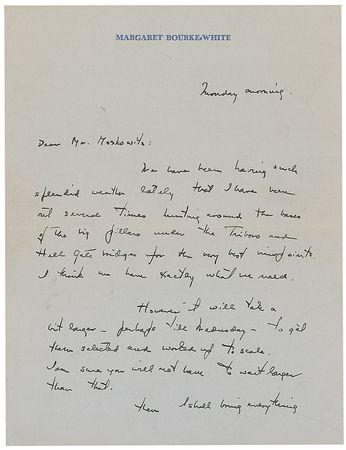 MARGARET BOURKE-WHITE
Monday morning.
Dear Mr. Moskowitz:
We have been having such
splendid weather lately that I have been
out several times hunting around the bases
of the big pillars under the Triboro and
Hell Gate bridges for the very best viewpoints.
I think we have exactly what we need.
However it will take a
bit longer – perhaps till Wednesday – to get
them selected and worked up to scale.
I am sure you will not have to wait longer
than that.
Then I shall bring everything